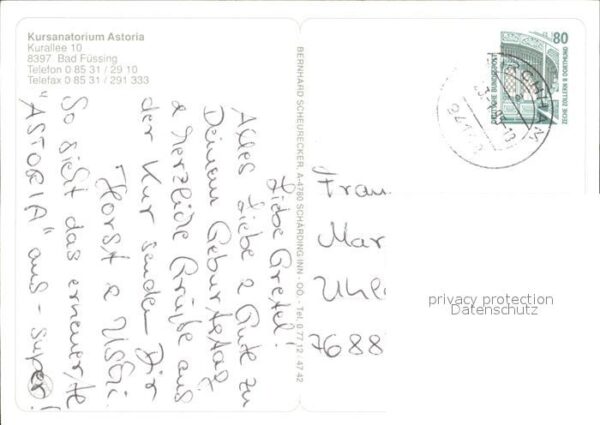 Kursanatorium Astoria
Kurallee 10
8397 Bad Füssing
Telefon 0 85 31 / 29 10
Telefax 0 85 31 / 291 333
Liebe Gretel!
Alles Liebe & Gute zu
Deinem Geburtstag
& herzliche Grüße aus
der Kur senden Dir
Horst & Ushi.
So sieht das erneuerte
"ASTORIA" aus - super!
BERNHARD SCHEURECKER, A-4780 SCHÄRDING/INN - OÖ. - Tel. 0 77 12 / 47 42
80
DEUTSCHE BUNDESPOST
ZECHE ZOLLERN II DORTMUND
Frau
Mar
Uhla
7688
privacy protection
Datenschutz